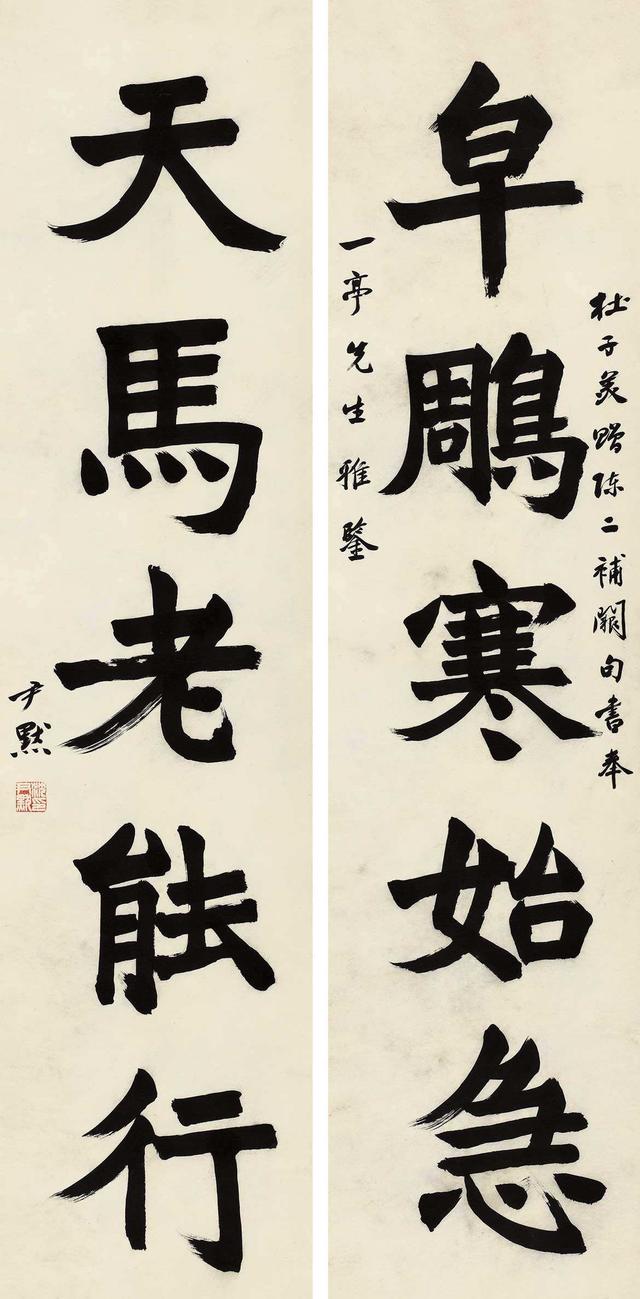 杜子美贈陳二補闕句書奉
皁鵰寒始急
一亭先生雅鑒
天馬老能行
尹默